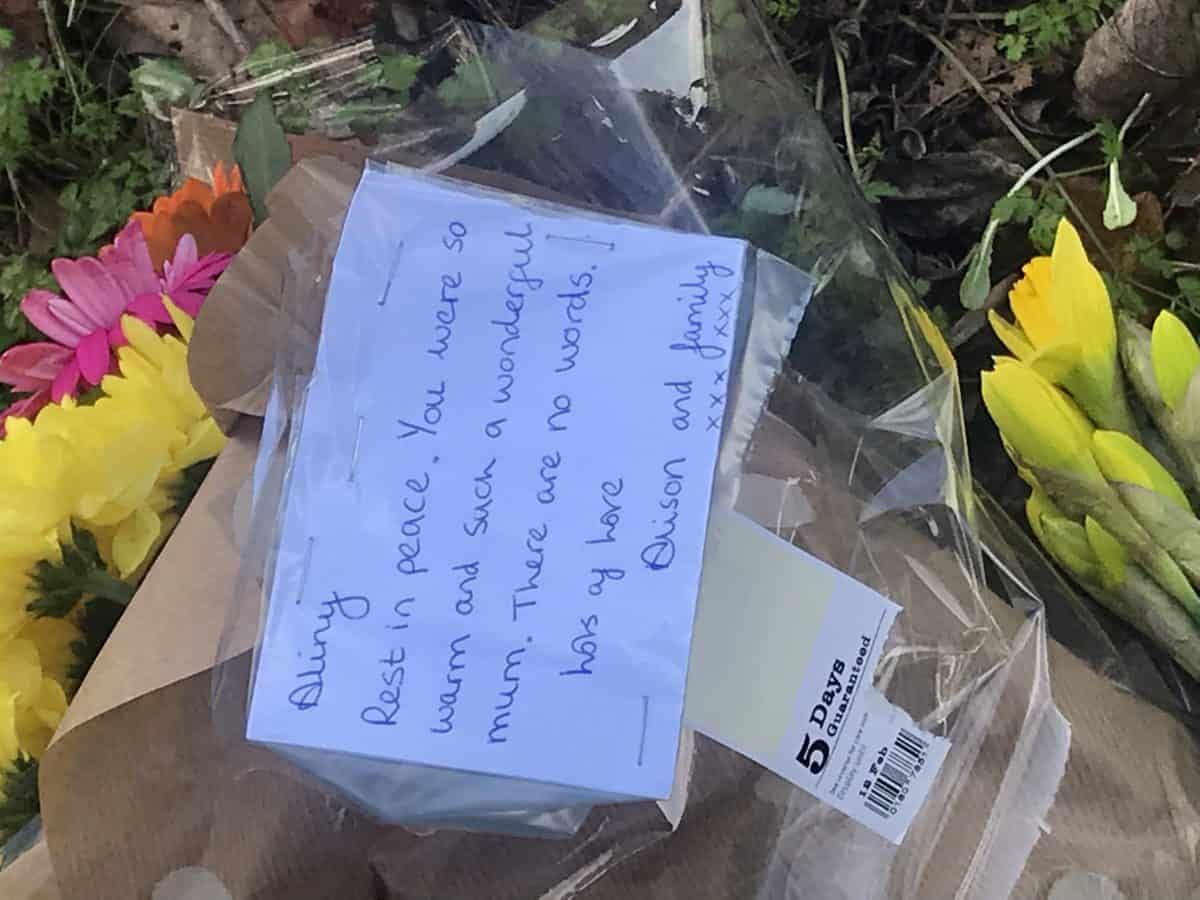 Aliny
Rest in peace. You were so
warm and such a wonderful
mum. There are no words.
lots of love
Alison and family
xxx xxx
5 Days
Guaranteed
Display until
12 Feb